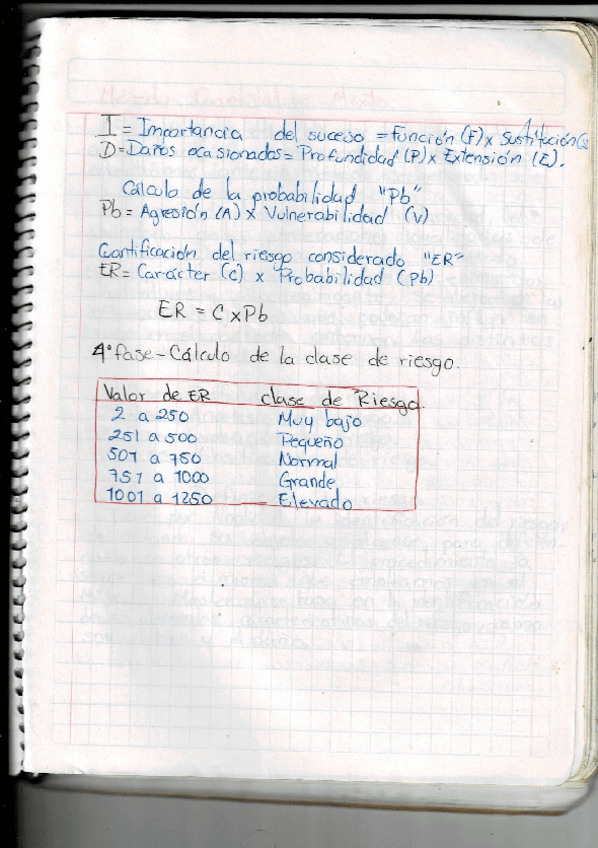 I = Importancia del suceso = Función (F) x Sustitución (S
D = Daños ocasionados = Profundidad (P) x Extensión (E).
Cálculo de la probabilidad "Pb"
Pb = Agresión (A) x Vulnerabilidad (V)
Cuantificación del riesgo considerado "ER"
ER = Carácter (C) x Probabilidad (Pb)
ER = C x Pb
4° fase - Cálculo de la clase de riesgo.
Valor de ER clase de Riesgo.
2 a 250 Muy bajo
251 a 500 Pequeño
501 a 750 Normal
751 a 1000 Grande
1001 a 1250 Elevado